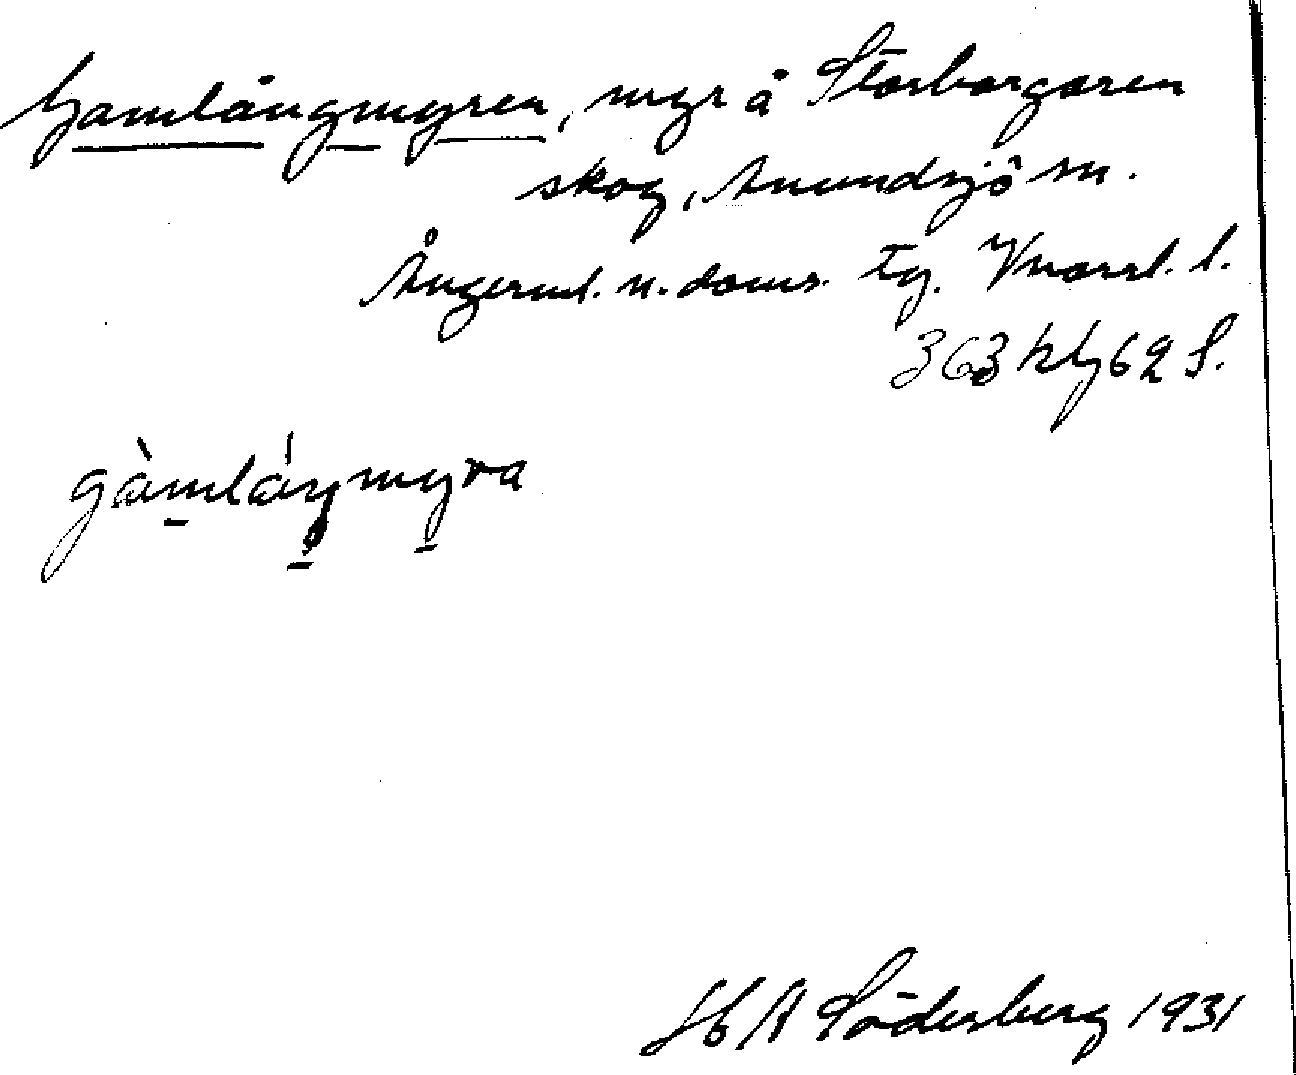 Gamlångmyren, myr å Storborgaren
skog, Anundsjö sn.
Ångerml. n. doms. tg. Vnorrl. l.
363 kby 62 S.
gàmláŋmyra
H A Söderberg 1931